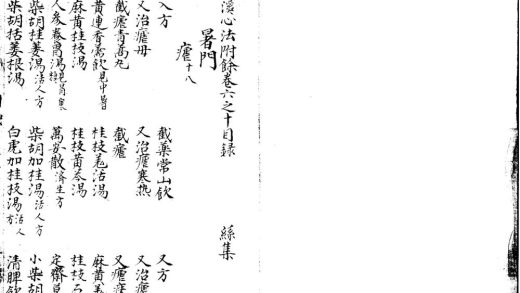 溪心法附餘卷六之十目録 絲集
暑門
瘧十八
方 截藥常山飲 又方
又治瘧母 又治瘧寒熱 又治瘧
截瘧青蒿丸 截瘧 又瘧寒
黄連香薷飲見中暑 桂枝羌活湯 麻黄羌
麻黄桂枝湯 桂枝黄芩湯 桂枝石
人參養胃湯 萬安散濟生方 定齋
柴胡桂薑湯活人方 柴胡加桂湯活人方 小柴胡
柴胡括蔞根湯 白虎加桂枝湯活人方 清脾飲